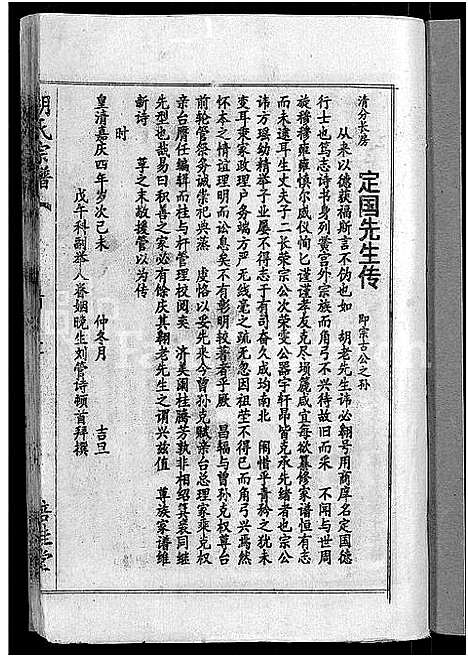 清分长房
定国先生传 即宗古公之孙
从来以德获福斯言不伪也如 胡老先生讳必翱号用商庠名定国德
行士也笃志诗书身列黉宫外宗族而角弓不兴待故旧而采 不闻与世周
旋穆穆雍雍慎尔威仪恂匕谨谨孝友克尽埙篪咸宜每欲纂修家谱恒有志
而未逮耳生丈夫子二长荣宗公次荣变公器宇轩昂皆克承先绪者也宗公
讳方瑶幼精举子业屡不得志于有司奋久成均南北 闱惜乎青衿之犹未
变耳乘家政理户务端方严无线毫之疏无忽因祖茔不得已而角弓兴焉然
怀本之情谊理明而讼息矣不有彰明较著者乎厥 昌辐与曾孙克权尊台
前轮管祭务诚崇祀典蒸 虔恪以妥先来今曾孙克赋亲台总理家乘克权
亲台膺任编辑而柱与杆管理校阅奕 济美阑桂腾芳孰非相绍箕裘同继
先型也哉易曰积善之家必有馀庆其翱老先生之谓兴兹值 尊族家谱维
新诗 草之未敢援管以为传
时
皇清嘉庆四年岁次己未 仲冬月 吉旦
戊午科副举人眷姻晚生刘管诗顿首拜撰
胡氏宗谱